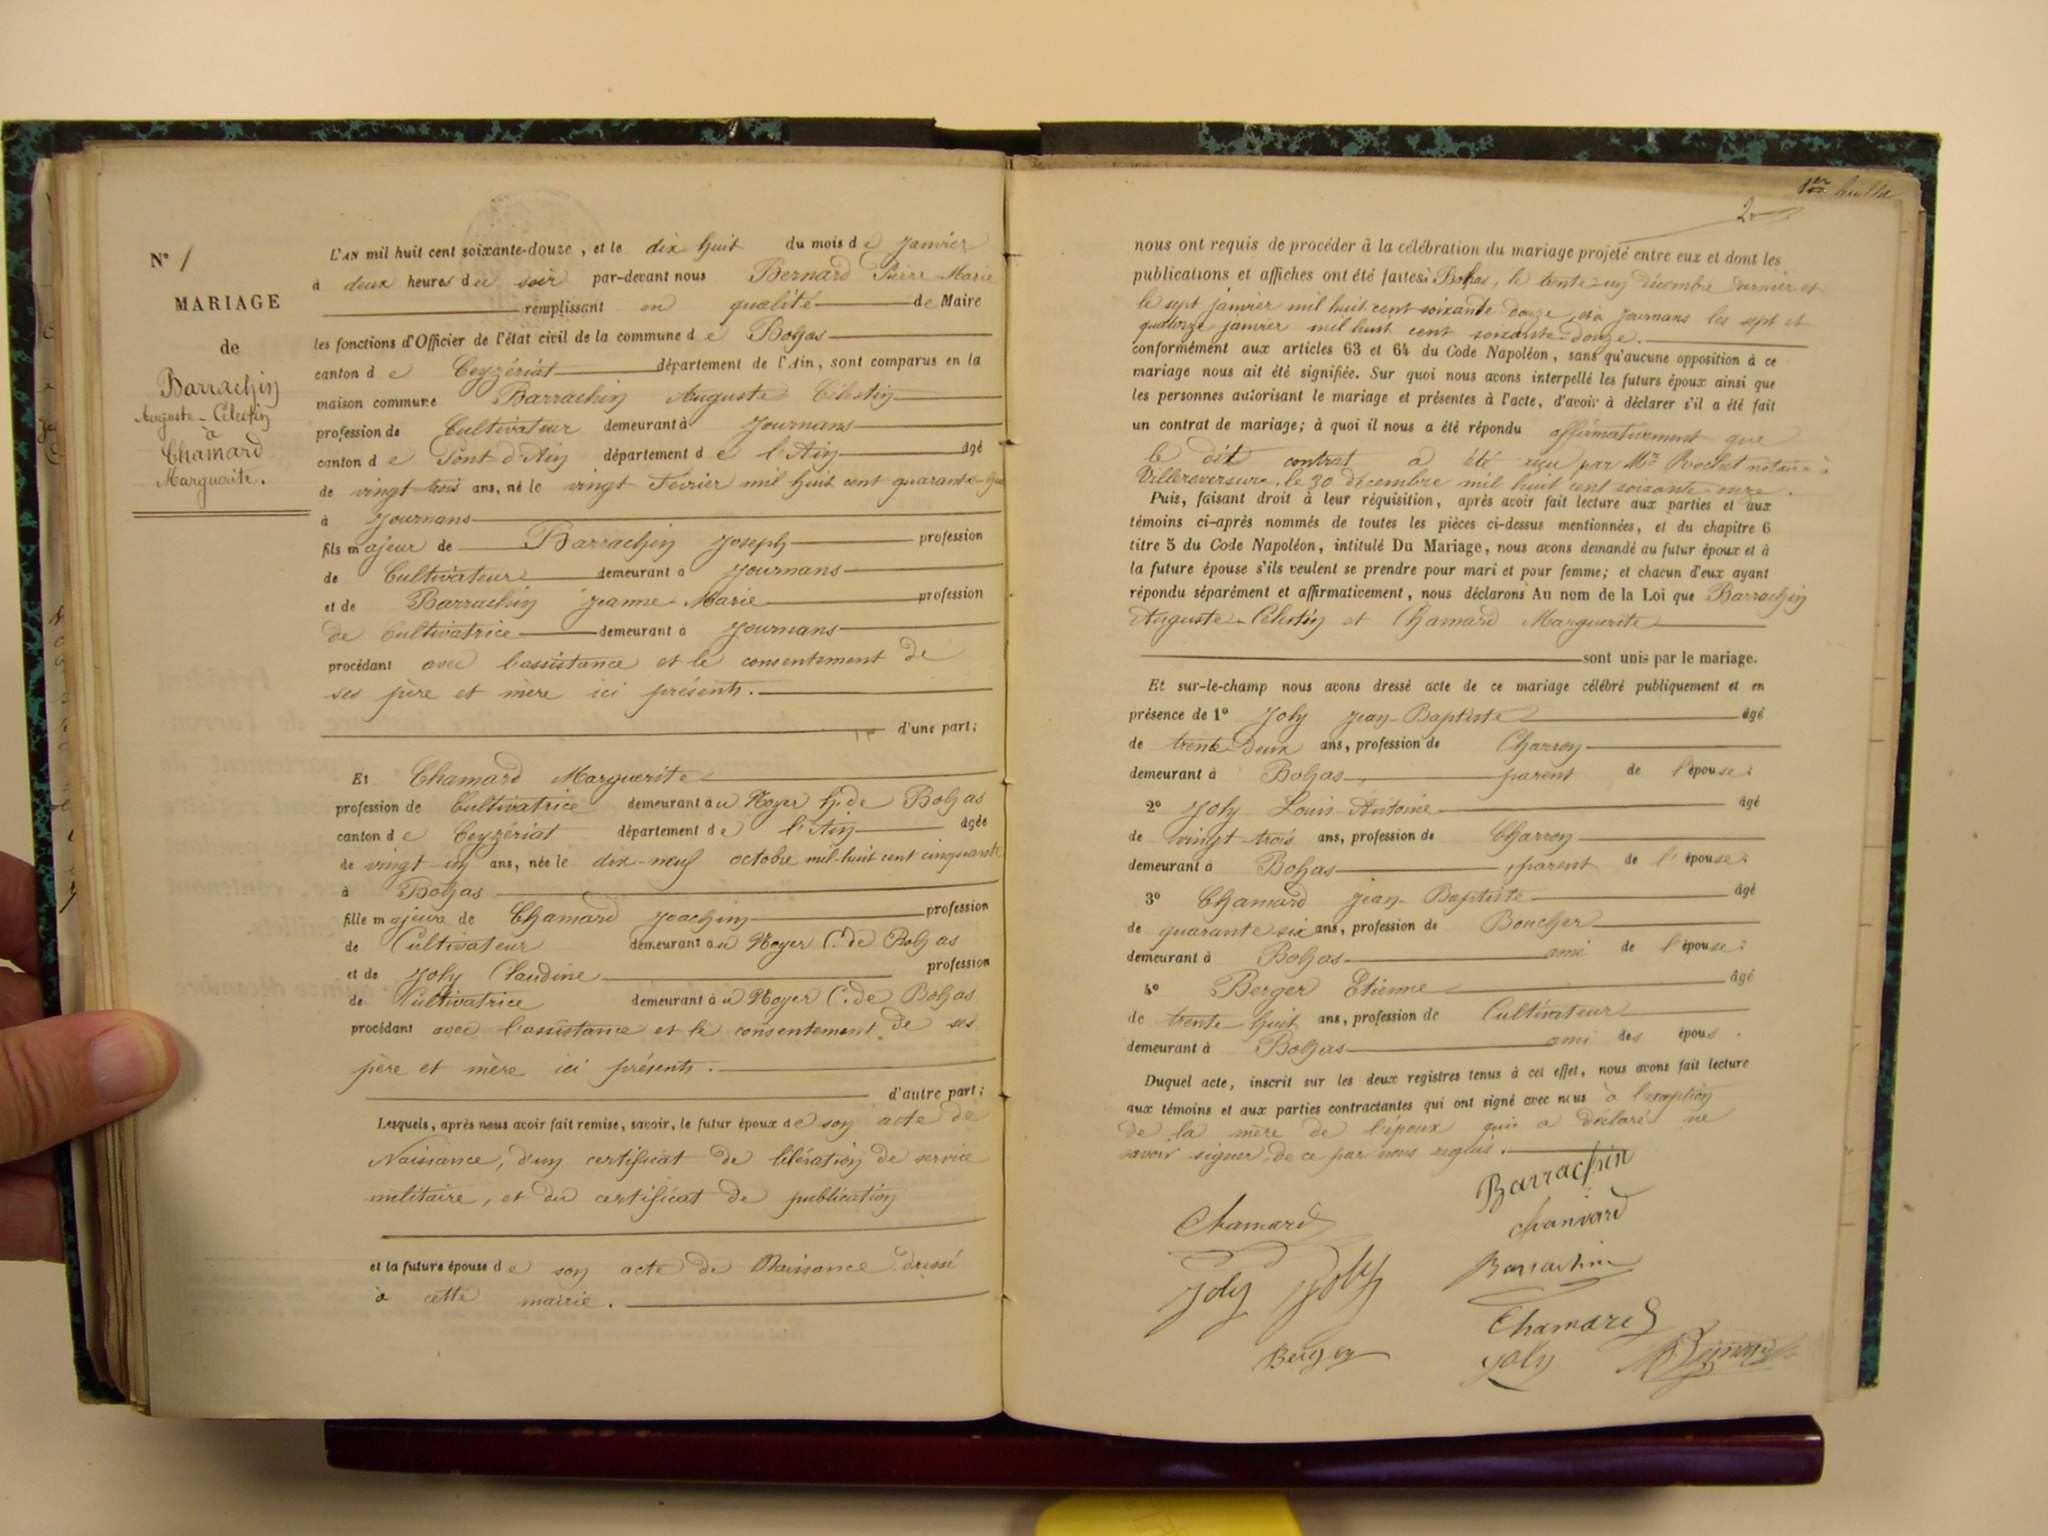 N° 1
MARIAGE
de
Barrachin
Auguste-Célestin
à
Chamard
Marguerite.
L'AN mil huit cent soixante-douze, et le dix huit du mois de Janvier
à deux heures du soir par-devant nous Bernard Pierre Marie
remplissant en qualité de Maire
les fonctions d'Officier de l'état civil de la commune de Bohas
canton de Ceyzériat département de l'Ain, sont comparus en la
maison commune Barrachin Auguste Célestin
profession de Cultivateur demeurant à Journans
canton de Pont d'Ain département de l'Ain âgé
de vingt trois ans, né le vingt Février mil huit cent quarante-huit
à Journans
fils majeur de Barrachin Joseph profession
de Cultivateur demeurant à Journans
et de Barrachin Jeanne-Marie profession
de Cultivatrice demeurant à Journans
procédant avec l'assistance et le consentement de
ses père et mère ici présents.
d'une part;
Et Chamard Marguerite
profession de Cultivatrice demeurant au Noyer h. de Bohas
canton de Ceyzériat département de l'Ain âgée
de vingt un ans, née le dix-neuf octobre mil huit cent cinquante
à Bohas
fille majeure de Chamard Joachim profession
de Cultivateur demeurant au Noyer C. de Bohas
et de Joly Claudine profession
de Cultivatrice demeurant au Noyer C. de Bohas
procédant avec l'assistance et le consentement de ses
père et mère ici présents.
d'autre part;
Lesquels, après nous avoir fait remise, savoir, le futur époux de son acte de
Naissance, d'un certificat de libération de service
militaire, et du certificat de publication
et la future épouse de son acte de Naissance dressé
à cette mairie.
1er
2
nous ont requis de procéder à la célébration du mariage projeté entre eux et dont les
publications et affiches ont été faites à Bohas, le trente-un décembre dernier et
le sept janvier mil huit cent soixante-douze, et à Journans les sept et
quatorze janvier mil huit cent soixante-douze.
conformément aux articles 63 et 64 du Code Napoléon, sans qu'aucune opposition à ce
mariage nous ait été signifiée. Sur quoi nous avons interpellé les futurs époux ainsi que
les personnes autorisant le mariage et présentes à l'acte, d'avoir à déclarer s'il a été fait
un contrat de mariage; à quoi il nous a été répondu affirmativement que
le dit contrat a été reçu par Mr Rochet notaire à
Villereversure, le 30 décembre mil huit cent soixante-onze.
Puis, faisant droit à leur réquisition, après avoir fait lecture aux parties et aux
témoins ci-après nommés de toutes les pièces ci-dessus mentionnées, et du chapitre 6
titre 5 du Code Napoléon, intitulé Du Mariage, nous avons demandé au futur époux et à
la future épouse s'ils veulent se prendre pour mari et pour femme; et chacun d'eux ayant
répondu séparément et affirmativement, nous déclarons Au nom de la Loi que Barrachin
Auguste-Célestin et Chamard Marguerite
sont unis par le mariage.
Et sur-le-champ nous avons dressé acte de ce mariage célébré publiquement et en
présence de 1° Joly Jean-Baptiste âgé
de trente-deux ans, profession de Charron
demeurant à Bohas parent de l'épouse;
2° Joly Louis-Antoine âgé
de vingt-trois ans, profession de Charron
demeurant à Bohas parent de l'épouse;
3° Chamard Jean-Baptiste âgé
de quarante six ans, profession de Boucher
demeurant à Bohas ami de l'épouse;
4° Berger Etienne âgé
de trente-huit ans, profession de Cultivateur
demeurant à Bohas ami des époux.
Duquel acte, inscrit sur les deux registres tenus à cet effet, nous avons fait lecture
aux témoins et aux parties contractantes qui ont signé avec nous à l'exception
de la mère de l'époux qui a déclaré ne
savoir signer, de ce par nous requis.
Barrachin
Chamard
chamard
Barrachin
Joly Joly
Chamard
Berger
Joly
Bernard